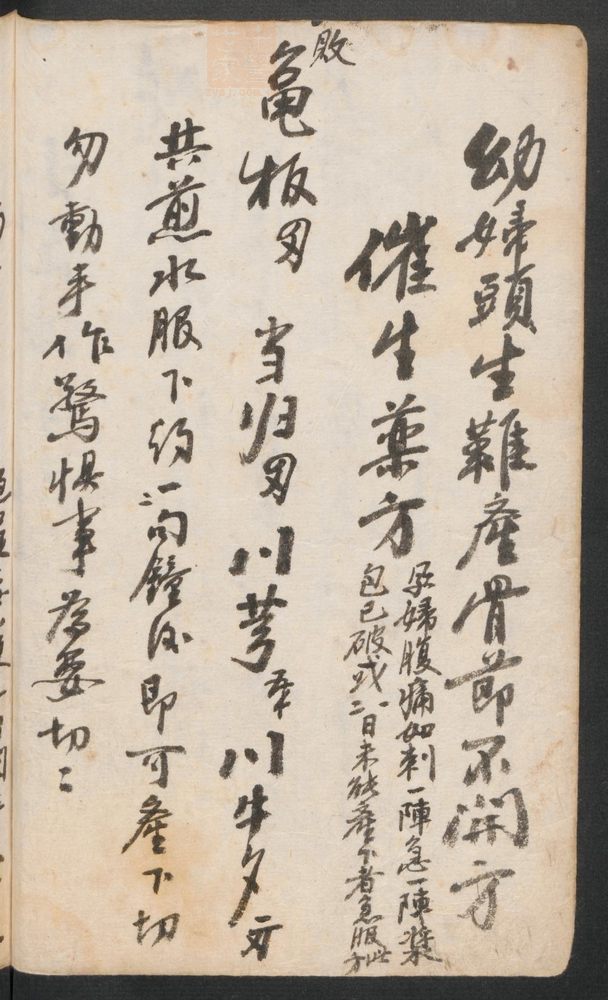 幼婦頭生難產骨節不開方
催生藥方
孕婦腹痛如刺一陣急一陣漿
包已破或一二日未能產下者急服此方
敗龜板 当归 川芎 川牛夕
共煎水服下約一二句鐘後即可產下切
勿動手作驚惧事為要切〻